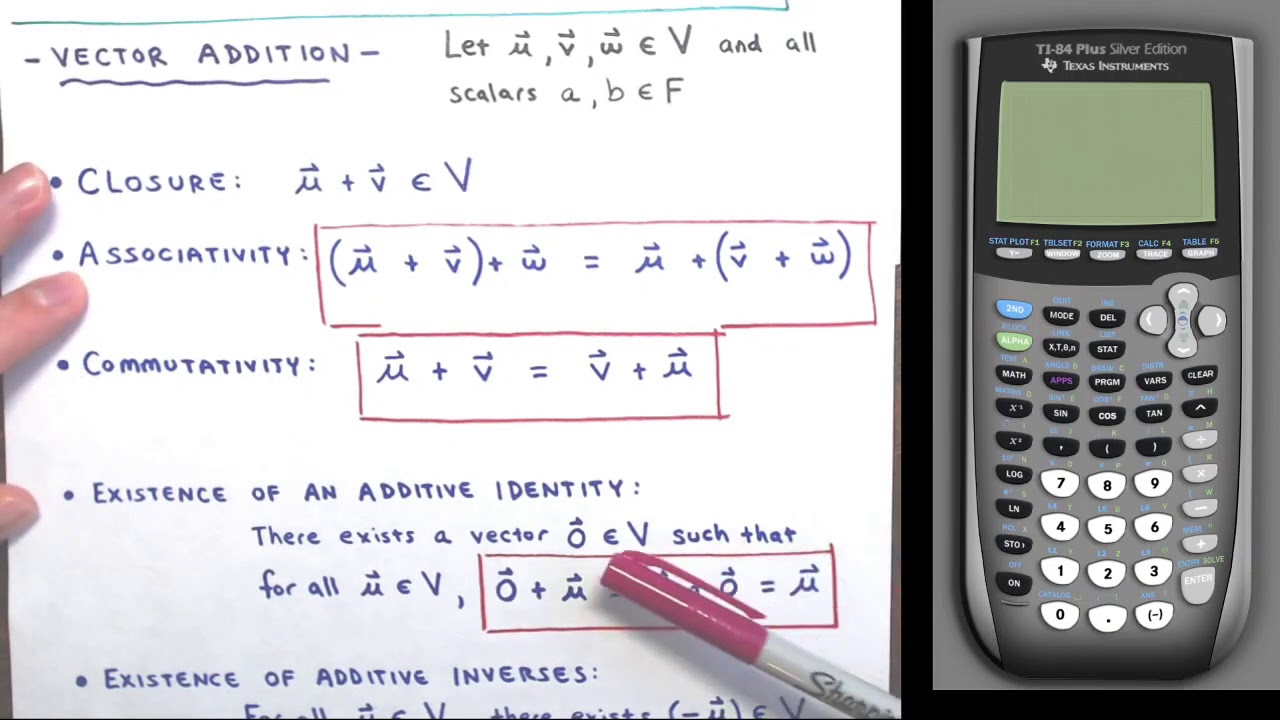 - VECTOR ADDITION -
Let u⃗, v⃗, w⃗ ∈ V and all
scalars a, b ∈ F
• CLOSURE: u⃗ + v⃗ ∈ V
• ASSOCIATIVITY: (u⃗ + v⃗) + w⃗ = u⃗ + (v⃗ + w⃗)
• COMMUTATIVITY: u⃗ + v⃗ = v⃗ + u⃗
• EXISTENCE OF AN ADDITIVE IDENTITY:
There exists a vector 0⃗ ∈ V such that
for all u⃗ ∈ V, 0⃗ + u⃗ + 0⃗ = u⃗
• EXISTENCE OF ADDITIVE INVERSES:
For all u⃗ ∈ V there exists (-u⃗) ∈ V
Sharpi
TI-84 Plus Silver Edition
TEXAS INSTRUMENTS
STAT PLOT F1 TBLSET F2 FORMAT F3 CALC F4 TABLE F5
Y= WINDOW ZOOM TRACE GRAPH
QUIT INS
2ND MODE DEL
A-LOCK LINK LIST
ALPHA X,T,θ,n STAT
TEST A ANGLE B DRAW C DISTR
MATH APPS PRGM VARS CLEAR
MATRIX D SIN⁻¹ E COS⁻¹ F TAN⁻¹ G π H
X⁻¹ SIN COS TAN ^
X² , ( ) ÷
LOG 7 8 9 ×
LN 4 5 6 −
RCL X L1 Y L2 Z L3 MEM "
STO› 1 2 3 +
OFF CATALOG ENTRY SOLVE
ON 0 . (−) ENTER